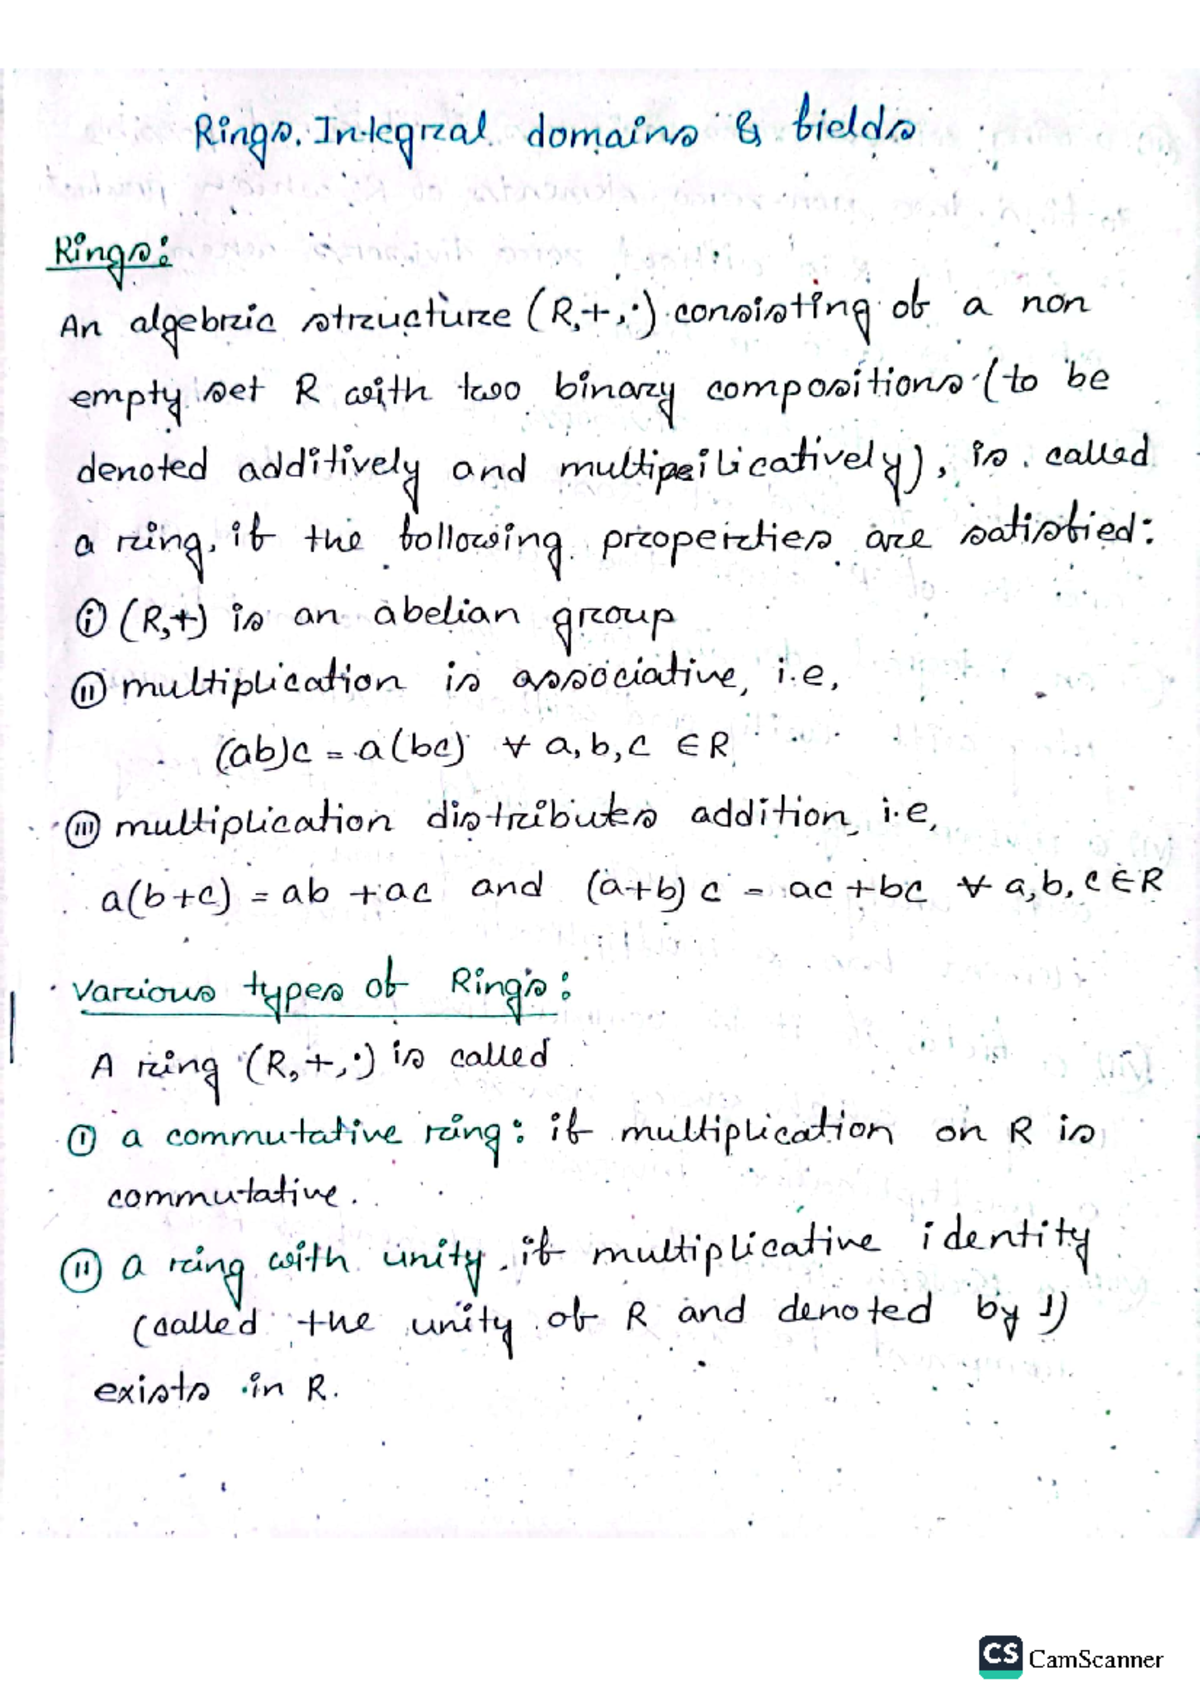 Rings. Integral domains & fields
Rings:
An algebric structure (R,+,·) consisting of a non
empty set R with two binary compositions (to be
denoted additively and multipilicatively), is called
a ring, if the following properties are satisfied:
(i) (R,+) is an abelian group
(ii) multiplication is associative, i.e,
(ab)c = a(bc) ∀ a, b, c ∈ R
(iii) multiplication distributes addition, i.e,
a(b+c) = ab + ac and (a+b) c = ac + bc ∀ a, b, c ∈ R
various types of Rings:
A ring (R,+,·) is called
(i) a commutative ring: if multiplication on R is
commutative.
(ii) a ring with unity. if multiplicative identity
(called the unity of R and denoted by 1)
exists in R.
CS CamScanner